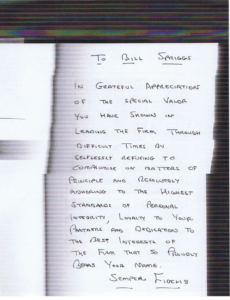 To Bill Spriggs
In Grateful Appreciation
of the special valor
you have shown in
leading the firm through
difficult times by
selflessly refusing to
compromise on matters of
principle and resolutely
adhering to the highest
standards of personal
integrity, loyalty to your
partners and dedication to
the best interests of
the firm that so proudly
bears your name.
Semper Fidelis